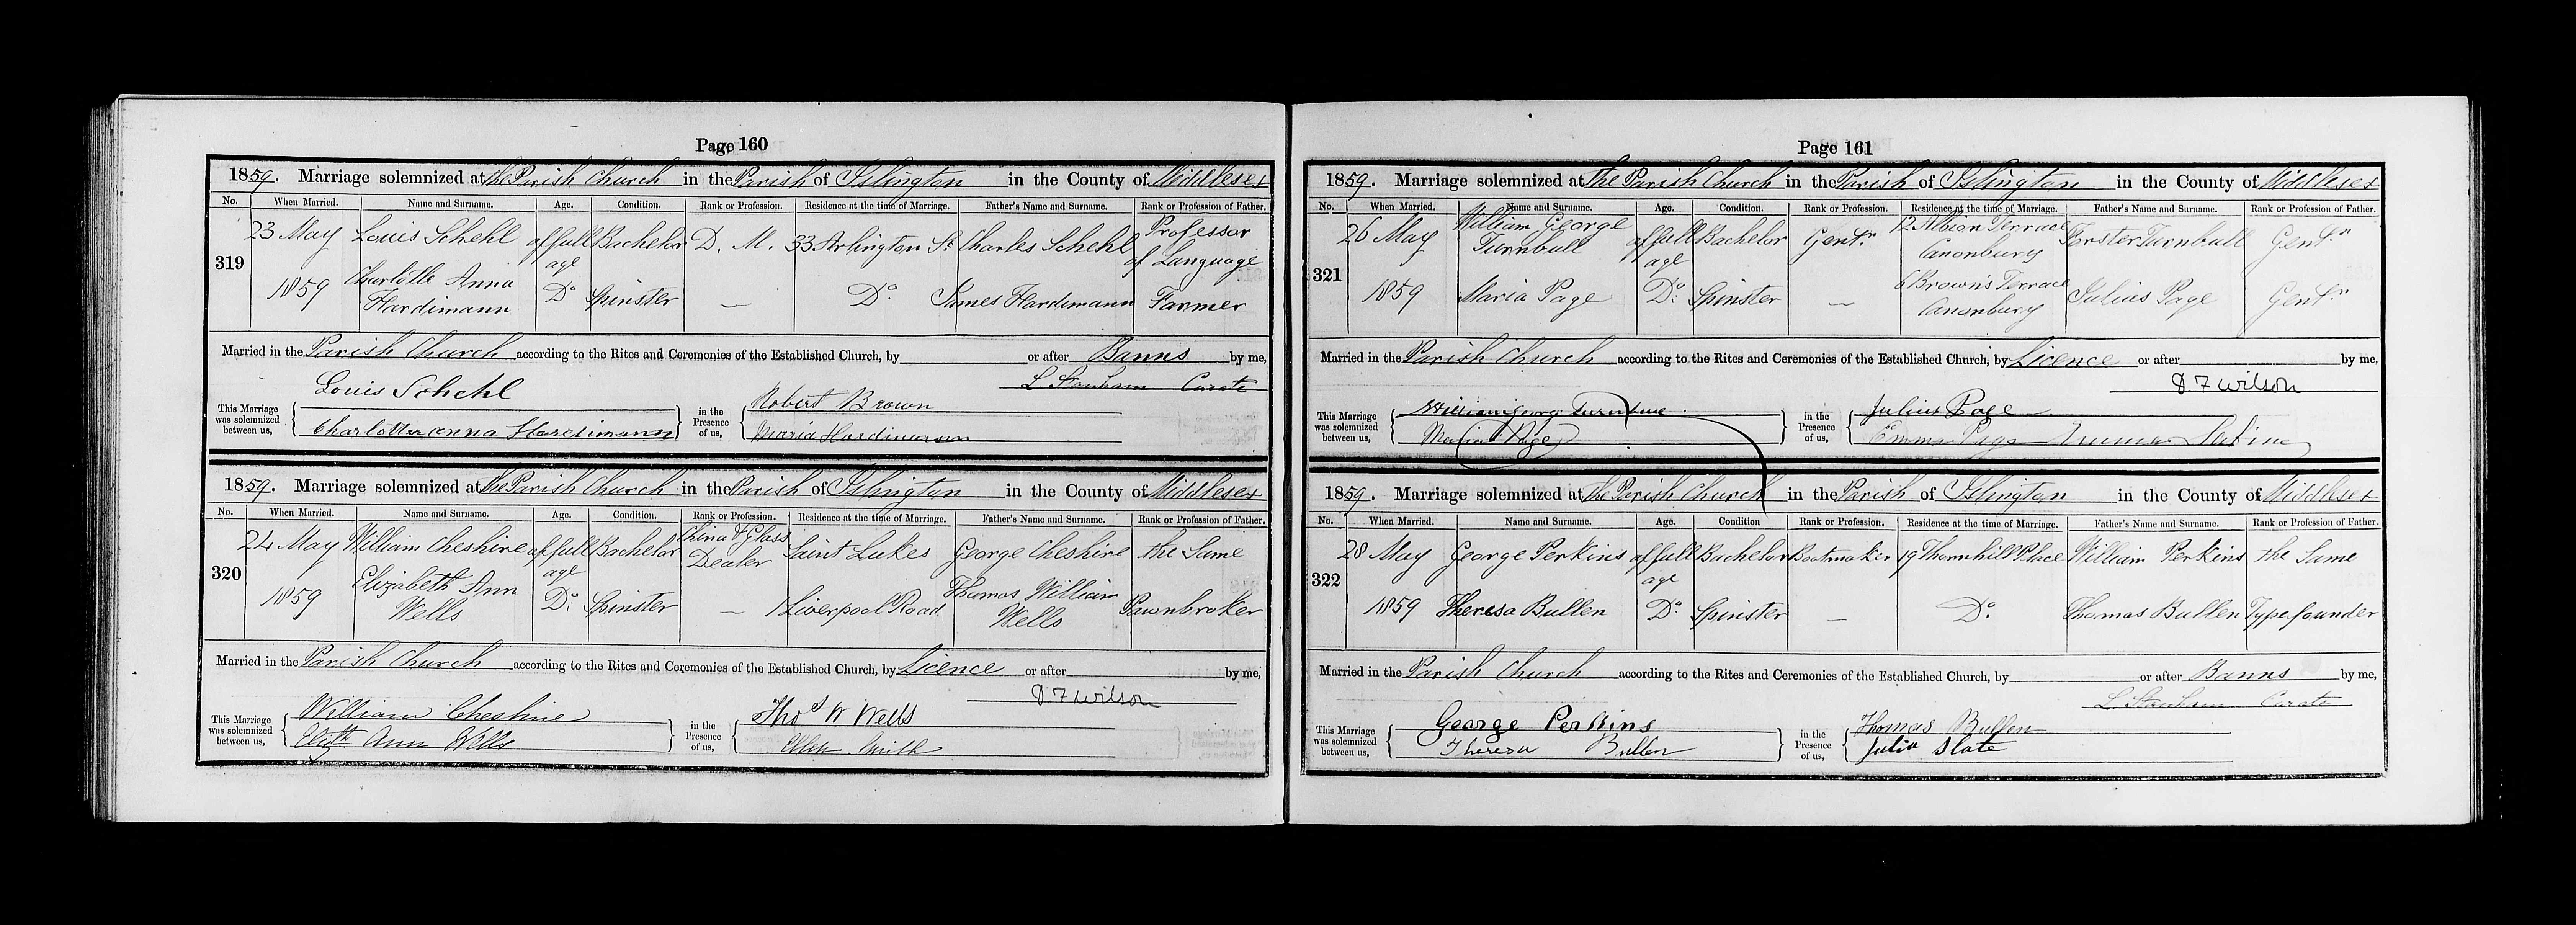 Page 160
1859. Marriage solemnized at the Parish Church in the Parish of Islington in the County of Middlesex
No. When Married. Name and Surname. Age. Condition. Rank or Profession. Residence at the time of Marriage. Father's Name and Surname. Rank or Profession of Father.
319
23 May 1859
Louis Schehl of full age Bachelor D. M. 33 Arlington St. Charles Schehl Professor of Language
Charlotte Anna Hardimann Do. Spinster — Do. James Hardimann Farmer
Married in the Parish Church according to the Rites and Ceremonies of the Established Church, by or after Banns by me,
L. Stanham Curate
This Marriage was solemnized between us,
Louis Schehl
Charlotte anna Hardimann
in the Presence of us,
Robert Brown
Maria Hardimann
1859. Marriage solemnized at the Parish Church in the Parish of Islington in the County of Middlesex
No. When Married. Name and Surname. Age. Condition. Rank or Profession. Residence at the time of Marriage. Father's Name and Surname. Rank or Profession of Father.
320
24 May 1859
William Cheshire of full age Bachelor China & Glass Dealer Saint Lukes George Cheshire the Same
Elizabeth Ann Wells Do. Spinster — Liverpool Road Thomas William Wells Pawnbroker
Married in the Parish Church according to the Rites and Ceremonies of the Established Church, by Licence or after by me,
D F Wilson
This Marriage was solemnized between us,
William Cheshire
Elizth Ann Wells
in the Presence of us,
Thos W Wells
Smith
Page 161
1859. Marriage solemnized at the Parish Church in the Parish of Islington in the County of Middlesex
No. When Married. Name and Surname. Age. Condition. Rank or Profession. Residence at the time of Marriage. Father's Name and Surname. Rank or Profession of Father.
321
26 May 1859
William George Turnbull of full age Bachelor Gentn. 12 Albion Terrace Canonbury Forster Turnbull Gentn.
Maria Page Do. Spinster — 6 Brown's Terrace Canonbury Julius Page Gentn.
Married in the Parish Church according to the Rites and Ceremonies of the Established Church, by Licence or after by me,
D F Wilson
This Marriage was solemnized between us,
William George Turnbull
Maria Page
in the Presence of us,
Julius Page
Emma Page
1859. Marriage solemnized at the Parish Church in the Parish of Islington in the County of Middlesex
No. When Married. Name and Surname. Age. Condition Rank or Profession. Residence at the time of Marriage. Father's Name and Surname. Rank or Profession of Father.
322
28 May 1859
George Perkins of full age Bachelor Bootmaker 19 Thornhill Place William Perkins the Same
Theresa Bullen Do. Spinster — Do. Thomas Bullen Typefounder
Married in the Parish Church according to the Rites and Ceremonies of the Established Church, by or after Banns by me,
L. Stanham Curate
This Marriage was solemnized between us,
George Perkins
Theresa Bullen
in the Presence of us,
Thomas Bullen
Julia Slate